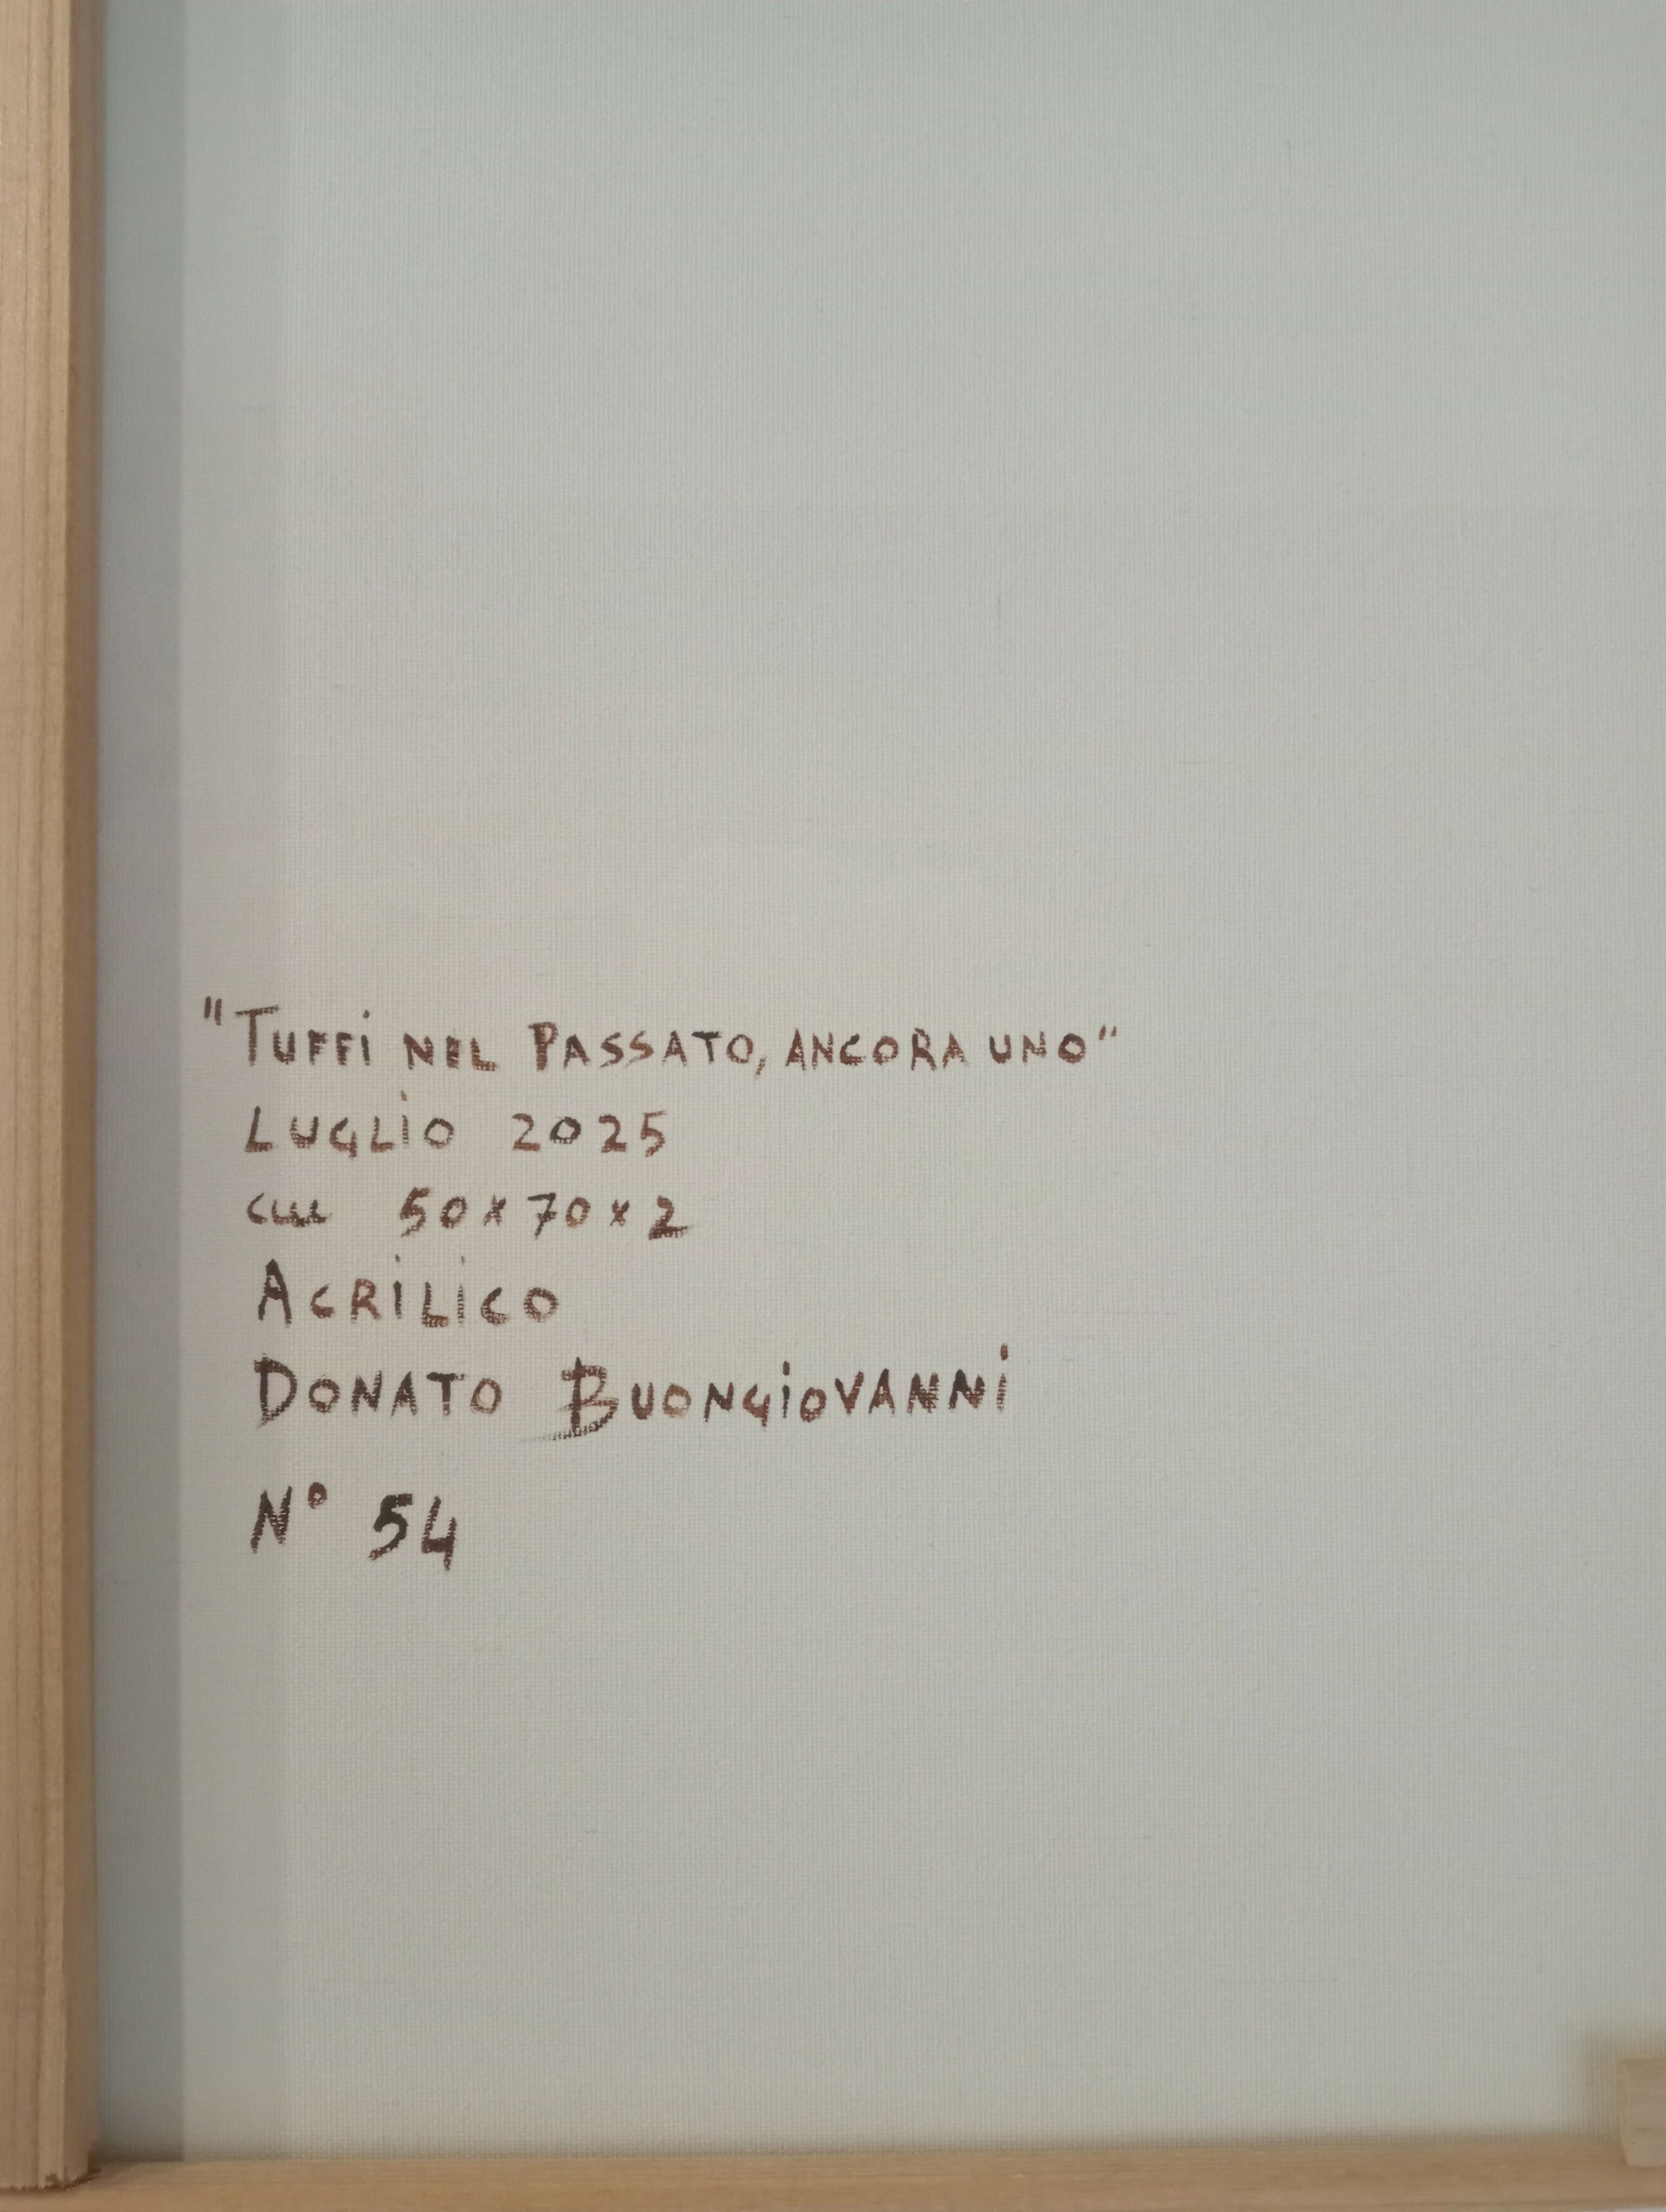 "Tuffi nel Passato, ancora uno"
Luglio 2025
cm 50x70x2
Acrilico
Donato Buongiovanni
N° 54